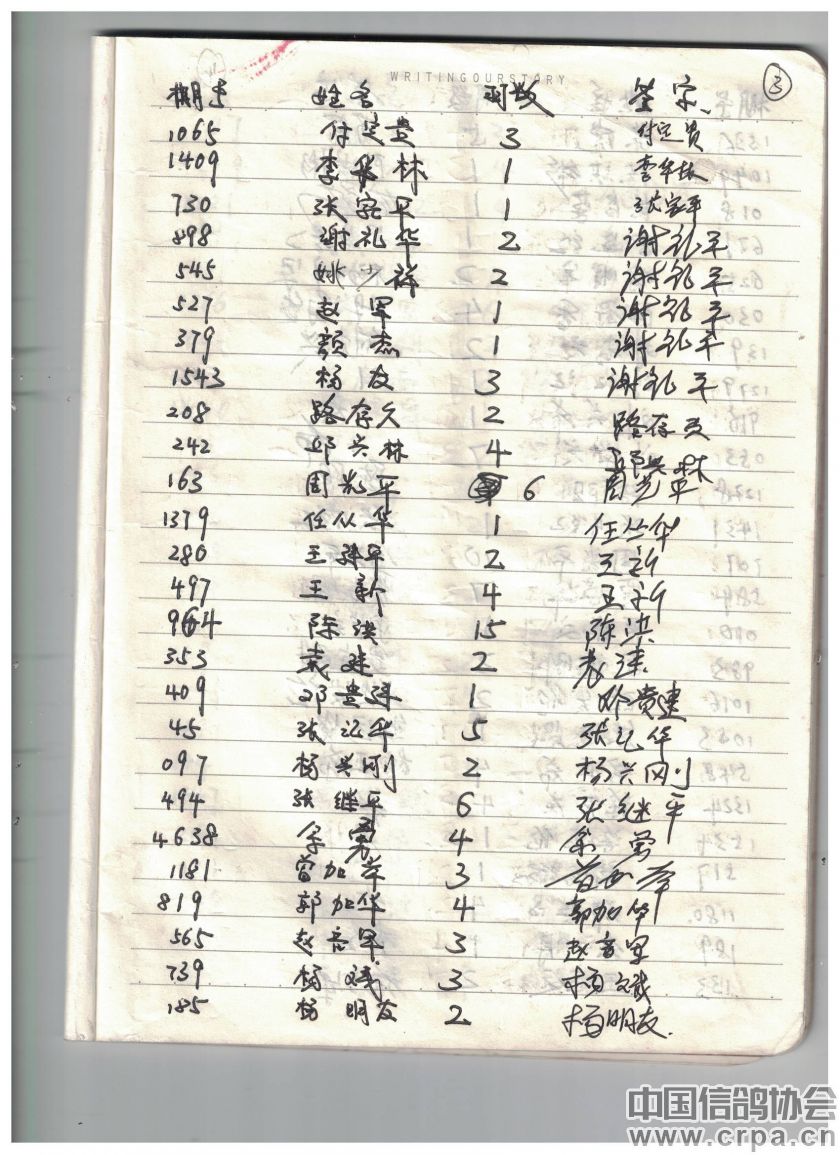 WRITINGOURSTORY
3
棚号 姓名 羽数 签字
1065 付定贵 3 付定贵
1409 李华林 1 李华林
730 张家平 1 张家平
898 谢礼华 2 谢礼平
545 姚少祥 2 谢礼平
527 赵军 1 谢礼平
379 颜杰 1 谢礼平
1543 杨友 3 谢礼平
208 路存久 2 路存
242 邱兴林 4 邱兴林
163 周光平 6 周光平
1379 任从华 1 任丛华
280 王建平 2 王新
497 王新 4 王新
964 陈洪 15 陈洪
353 袁建 2 袁建
409 邓贵建 1 邓贵建
45 张记华 5 张记华
097 杨兴刚 2 杨兴冈刂
494 张继平 6 张继平
4638 余勇 4 余勇
1181 曾加举 3
819 郭加华 4 郭加华
565 赵言军 3 赵言军
739 杨斌 3 杨斌
185 杨明友 2 杨明友.
中国信鸽协会
www.crpa.cn